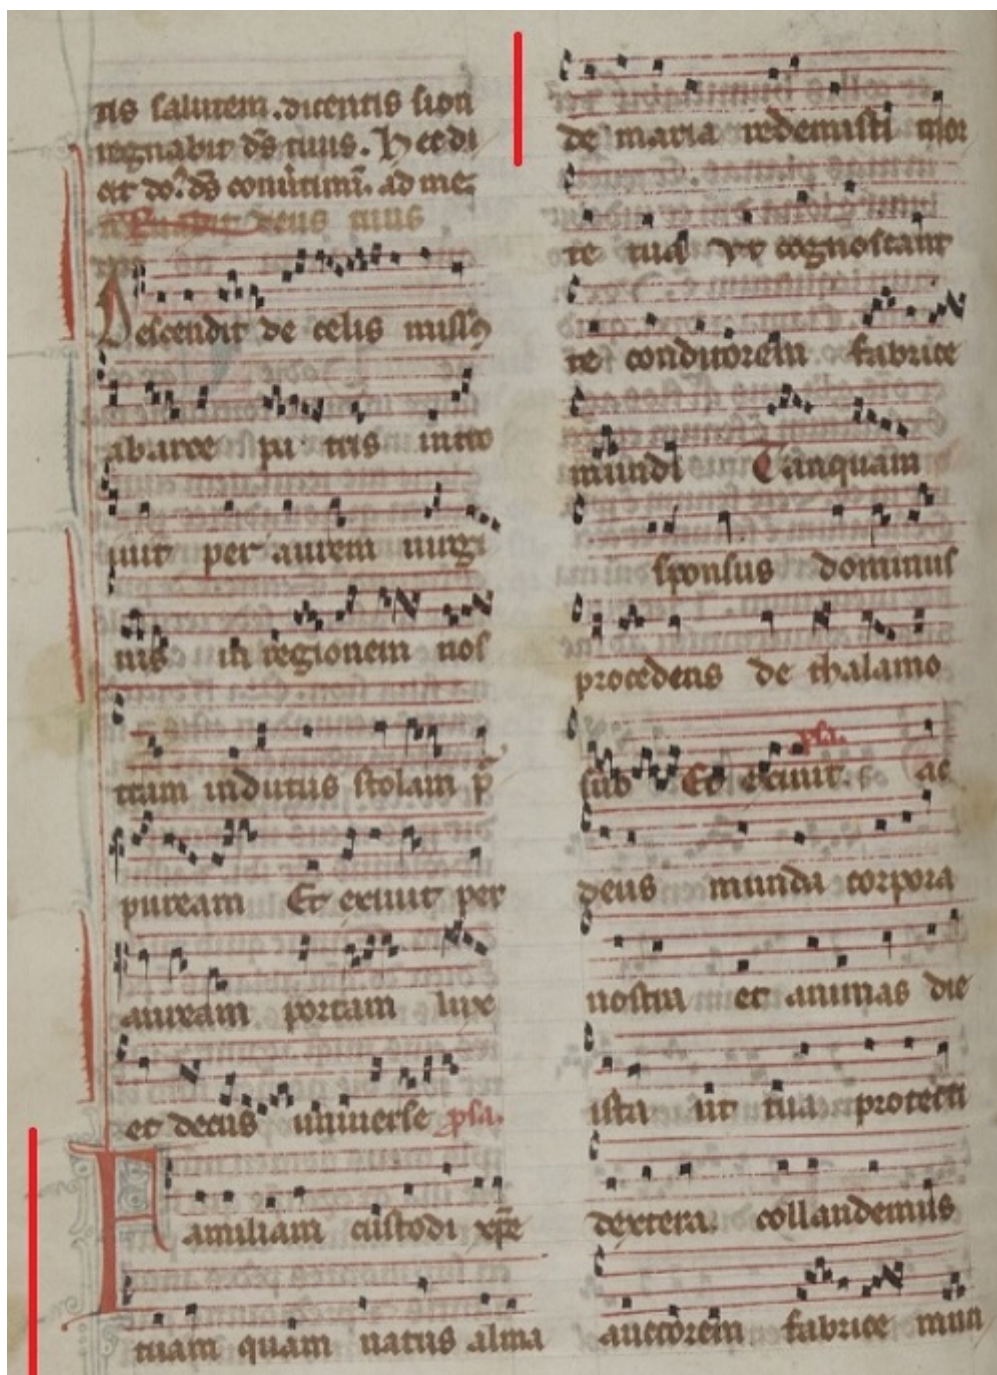 tis salutem. dicentis sion
regnabit ds tuus. Hec di
cit do. ds conuertimi. ad me
deus tuus
Descendit de celis missus
ab arce pa tris intro
iuit per aurem uirgi
nis in regionem nos
tram indutus stolam p̄
puream Et exiuit per
auream portam lux
et decus uniuerse psa.
Familiam custodi xp̄e
tuam quam natus alma
de maria redemisti mor
te tua Vt cognoscant
te conditorem fabrice
mundi Tanquam
sponsus dominus
procedens de thalamo
suo Et exiuit. psa. ac
deus munda corpora
nostra et animas die
ista ut tua protecti
dextera. collaudemus
auctorem fabrice mun